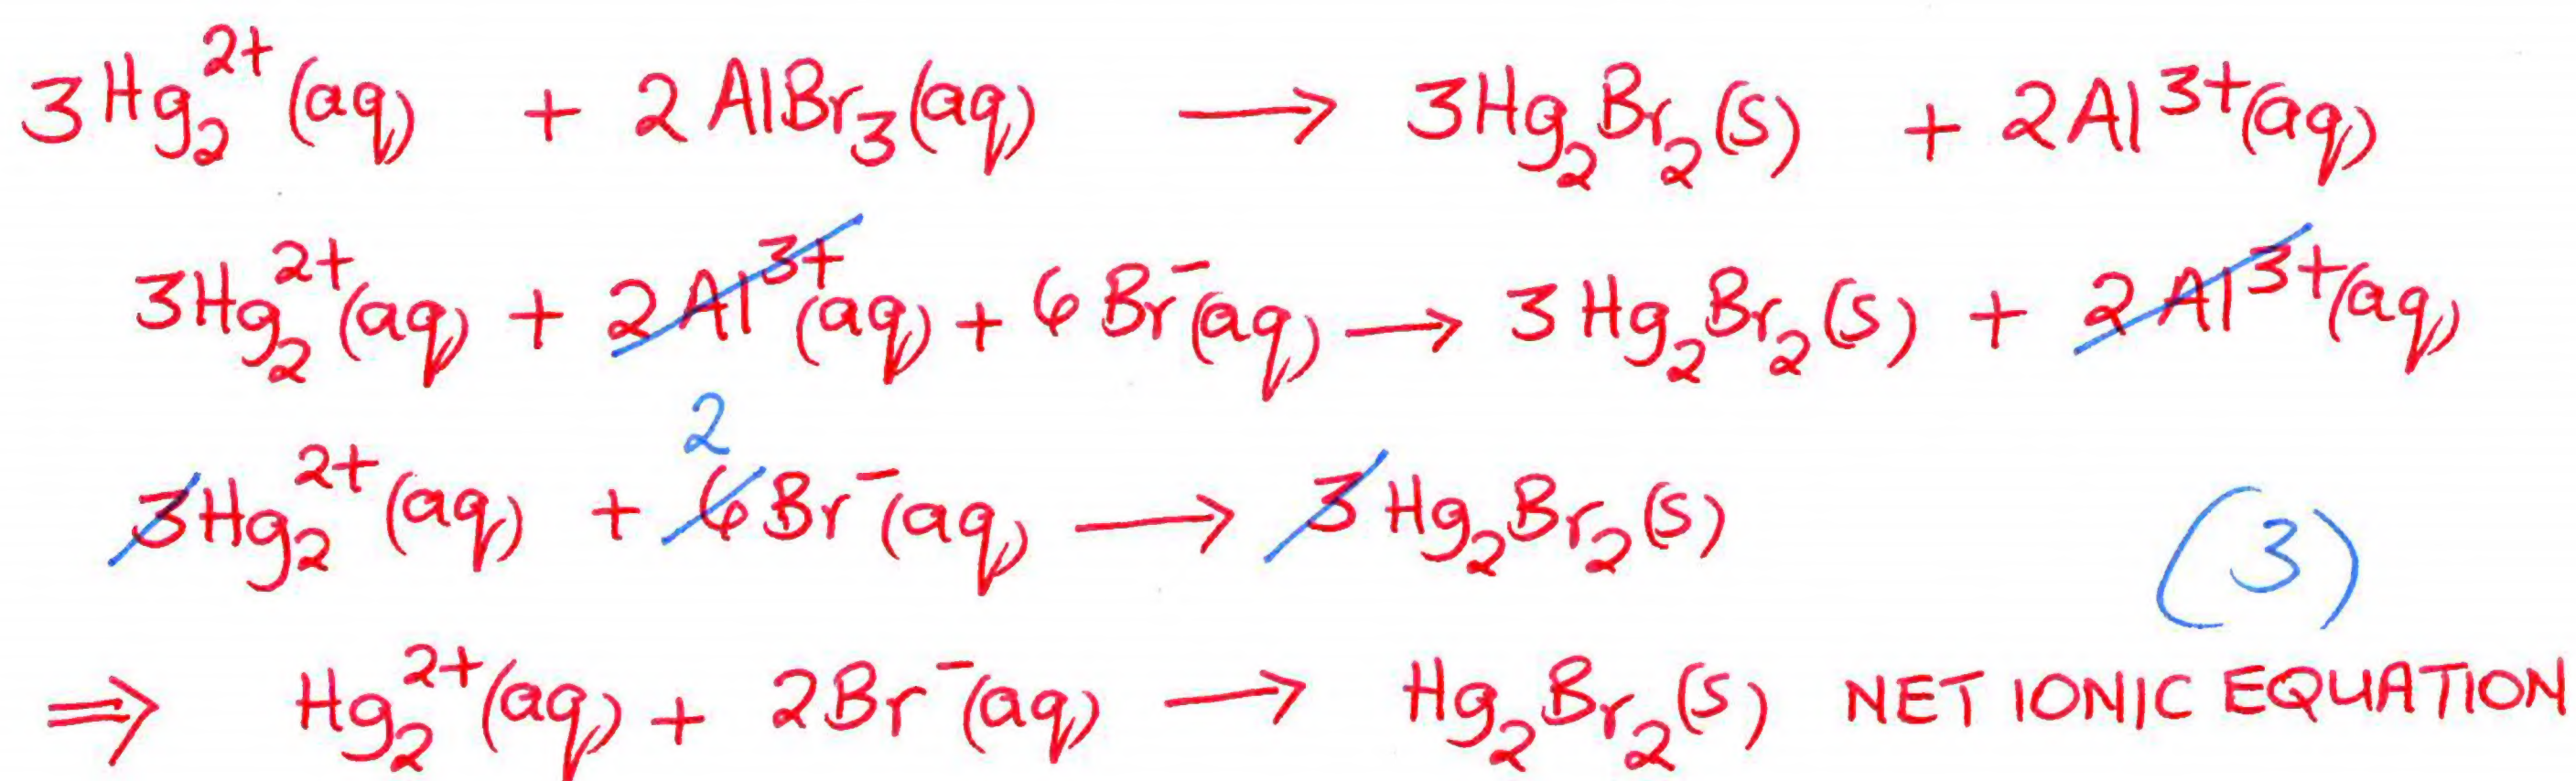 3Hg₂²⁺(aq) + 2AlBr₃(aq) → 3Hg₂Br₂(s) + 2Al³⁺(aq)
3Hg₂²⁺(aq) + 2Al³⁺(aq) + 6Br⁻(aq) → 3Hg₂Br₂(s) + 2Al³⁺(aq)
2
3Hg₂²⁺(aq) + 6Br⁻(aq) → 3Hg₂Br₂(s) (3)
⇒ Hg₂²⁺(aq) + 2Br⁻(aq) → Hg₂Br₂(s) NET IONIC EQUATION